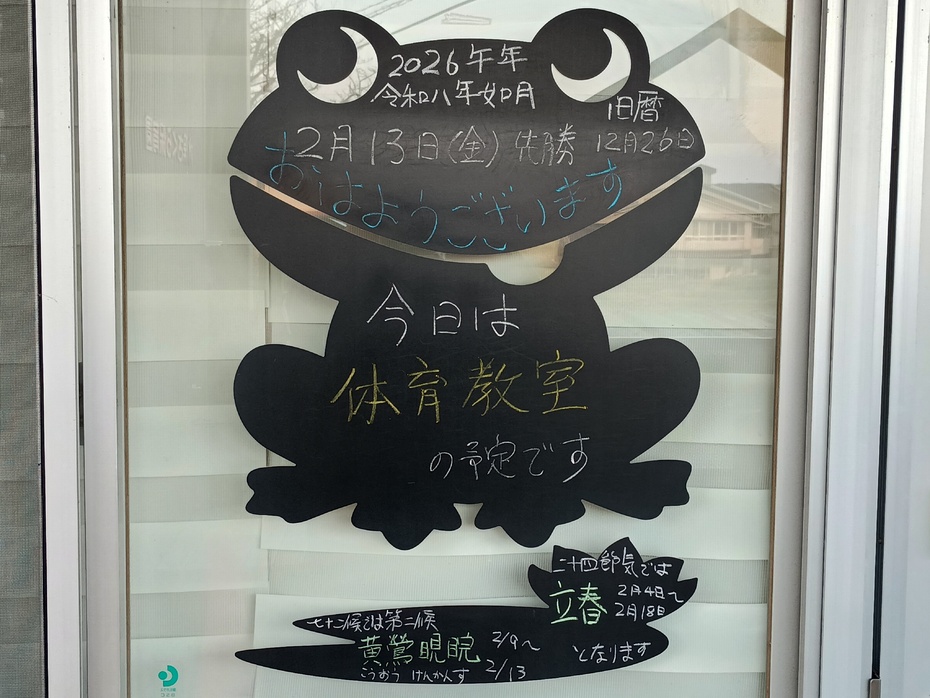 2026午年
令和八年如月
旧暦
2月13日(金)先勝 12月26日
おはようございます
今日は
体育教室
の予定です
二十四節気では
立春 2月4日〜
2月18日
七十二候では第二候
黄鶯睍睆 2/9〜
こうおう けんかんす 2/13
となります